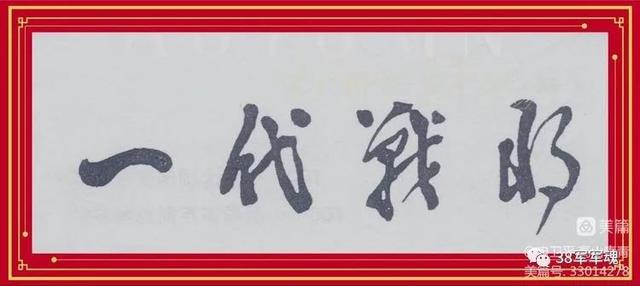 一代戰将
美篇
38军军魂
美篇号: 33014278